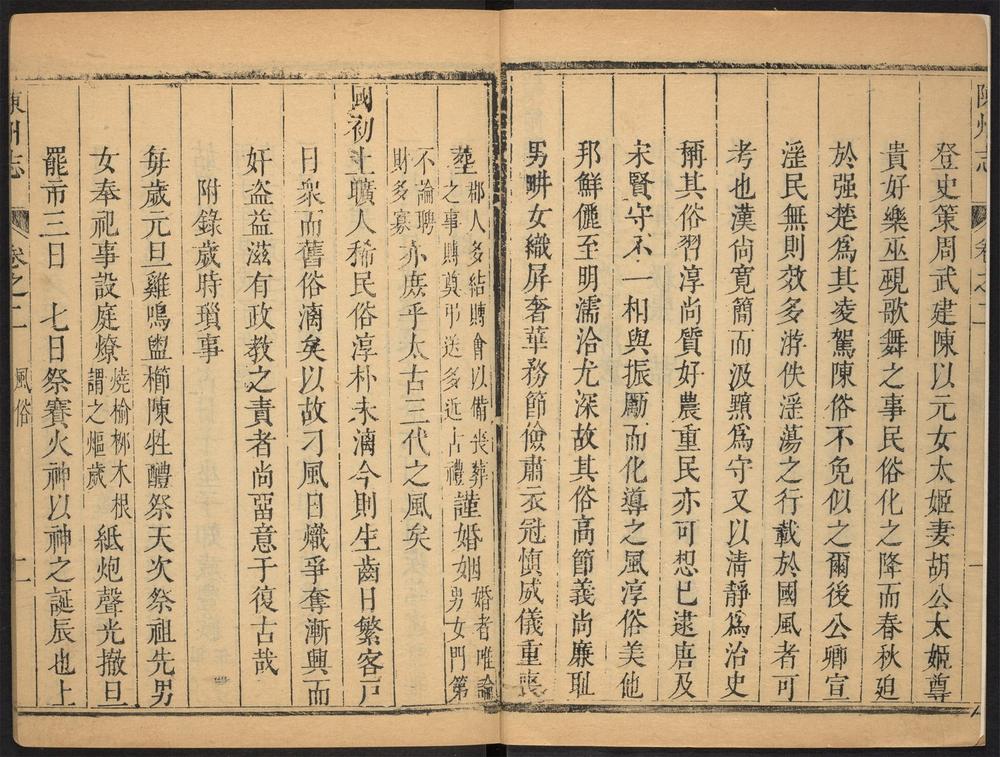 陳州志 卷之二
登史策周武建陳以元女太姬妻胡公太姬尊
貴好樂巫覡歌舞之事民俗化之降而春秋廹
於强楚爲其凌駕陳俗不免似之爾後公卿宣
淫民無則效多游佚淫蕩之行載於國風者可
考也漢尙寛簡而汲黯爲守又以淸靜爲治史
稱其俗習淳尙質好農重民亦可想已逮唐及
宋賢守不一相與振勵而化導之風淳俗美他
邦鮮儷至明濡洽尤深故其俗高節義尚廉耻
男畊女織屏奢華務節儉肅衣冠愼威儀重喪
葬郡人多結賻會以備喪葬之事賻奠弔送多近古禮謹婚姻婚者唯論男女門第
不論聘財多寡亦庶乎太古三代之風矣
國初土曠人稀民俗淳朴未漓今則生齒日繁客戸
日衆而舊俗漓矣以故刁風日熾爭奪漸興而
奸盗益滋有政教之責者尚畱意于復古哉
附錄歲時瑣事
每歲元旦雞鳴盥櫛陳牲醴祭天次祭祖先男
女奉祀事設庭燎燒榆柳木根謂之熰歲紙炮聲光撤旦
罷市三日 七日祭賽火神以神之誕辰也上
陳州志 卷之二 風俗 二